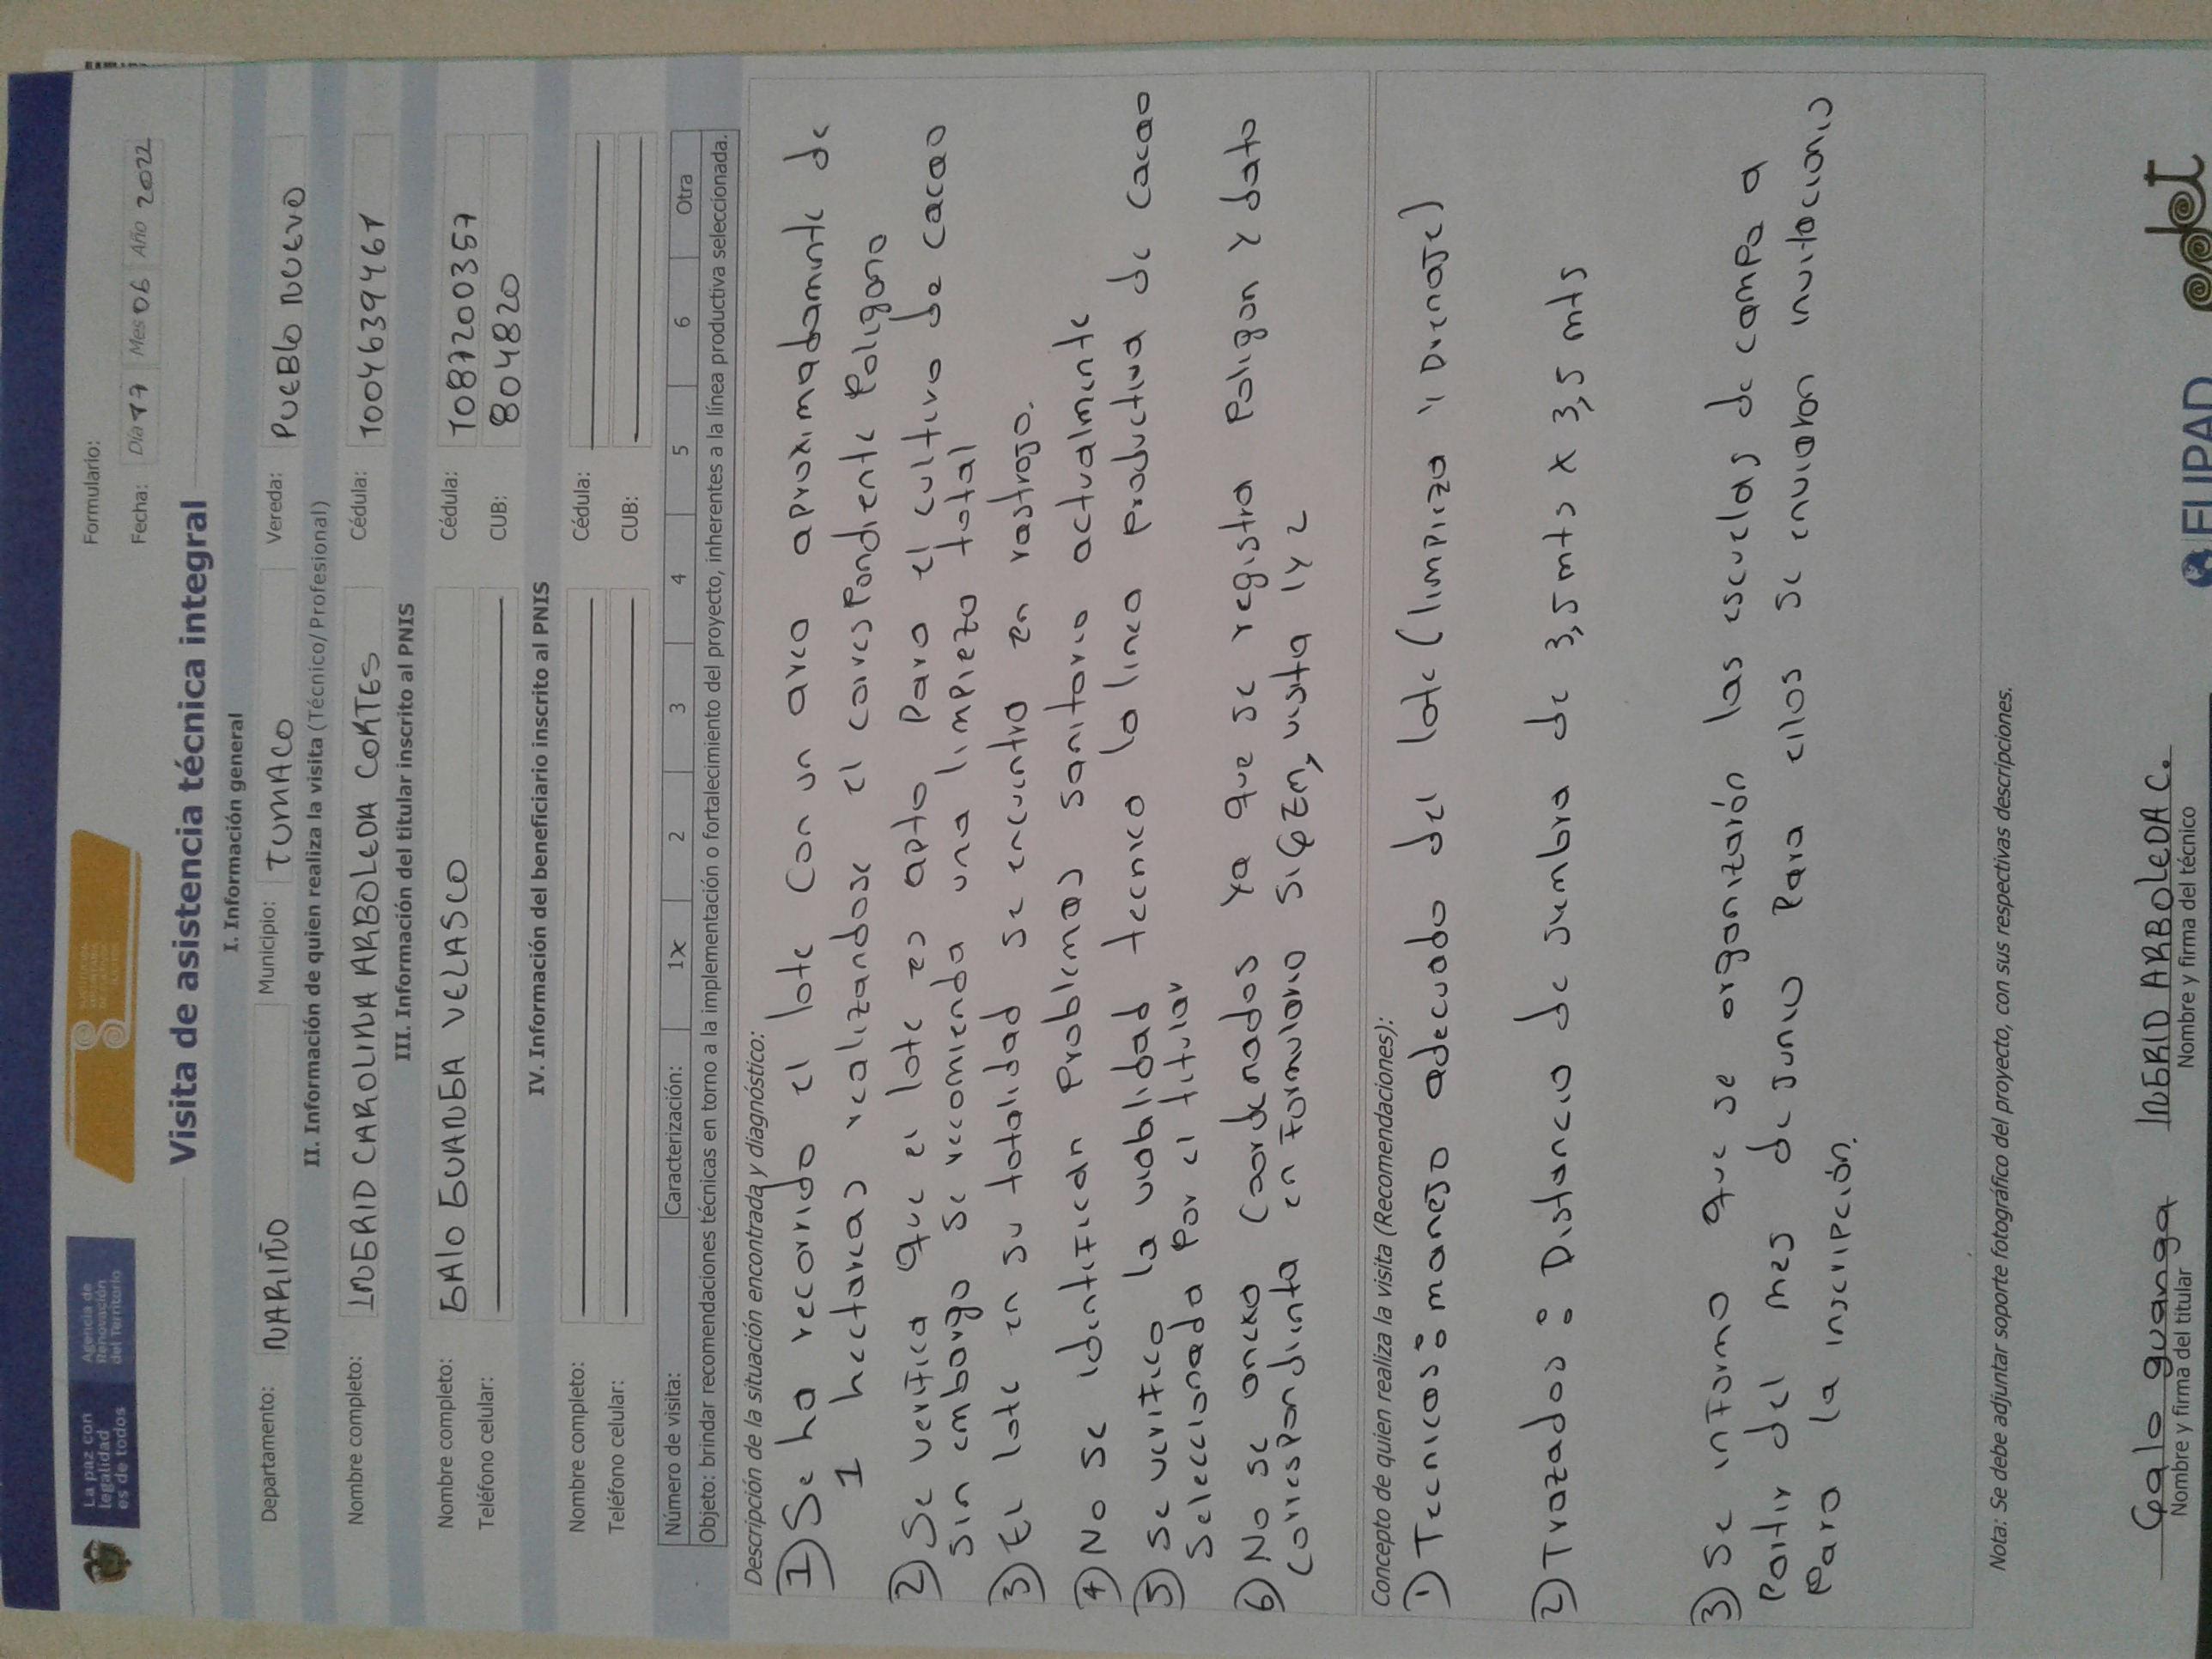 La paz con
legalidad
es de todos
Agencia de
Renovación
del Territorio
Formulario:
Fecha: Día 17 Mes 06 Año 2022
Visita de asistencia técnica integral
I. Información general
Departamento: NARIÑO Municipio: TUMACO Vereda: PUEBLO NUEVO
II. Información de quien realiza la visita (Técnico/Profesional)
Nombre completo: INGRID CAROLINA ARBOLEDA CORTES Cédula: 1004639461
III. Información del titular inscrito al PNIS
Nombre completo: GALO GUANGA VELASCO Cédula: 1087200357
Teléfono celular: CUB: 804820
IV. Información del beneficiario inscrito al PNIS
Nombre completo: Cédula:
Teléfono celular: CUB:
Número de visita: Caracterización: 1x 2 3 4 5 6 Otra
Objeto: brindar recomendaciones técnicas en torno a la implementación o fortalecimiento del proyecto, inherentes a la línea productiva seleccionada.
Descripción de la situación encontrada y diagnóstico:
1) Se ha recorrido el lote Con un area aproximadamente de
1 hectareas realizandose el correspondiente Poligono
2) Se verifica que el lote es apto Para el cultivo de cacao
sin embargo se recomienda una limpieza total
3) El lote en su totalidad se encuentra en rastrojo.
4) No se identifican Problemas sanitario actualmente
5) se verifico la viabilidad tecnica la linea productiva de cacao
Seleccionada Por el titular
6) No se anexa Coordenadas Ya que se registra Poligon y dato
correspondinta en Formulario SIGEM, visita 1y2
Concepto de quien realiza la visita (Recomendaciones):
1) Tecnicos: manejo adecuado del lote (limpieza y Drenaje)
2) Trazados: Distancia de siembra de 3,5 mts x 3,5 mts
3) Se informa que se organizarón las escuelas de campo a
Partir del mes de Junio Para ellos se enviaron invitaciones
Para la inscripción.
Nota: Se debe adjuntar soporte fotográfico del proyecto, con sus respectivas descripciones.
Galo guanga
Nombre y firma del titular
INGRID ARBOLEDA C.
Nombre y firma del técnico
ELIPAD